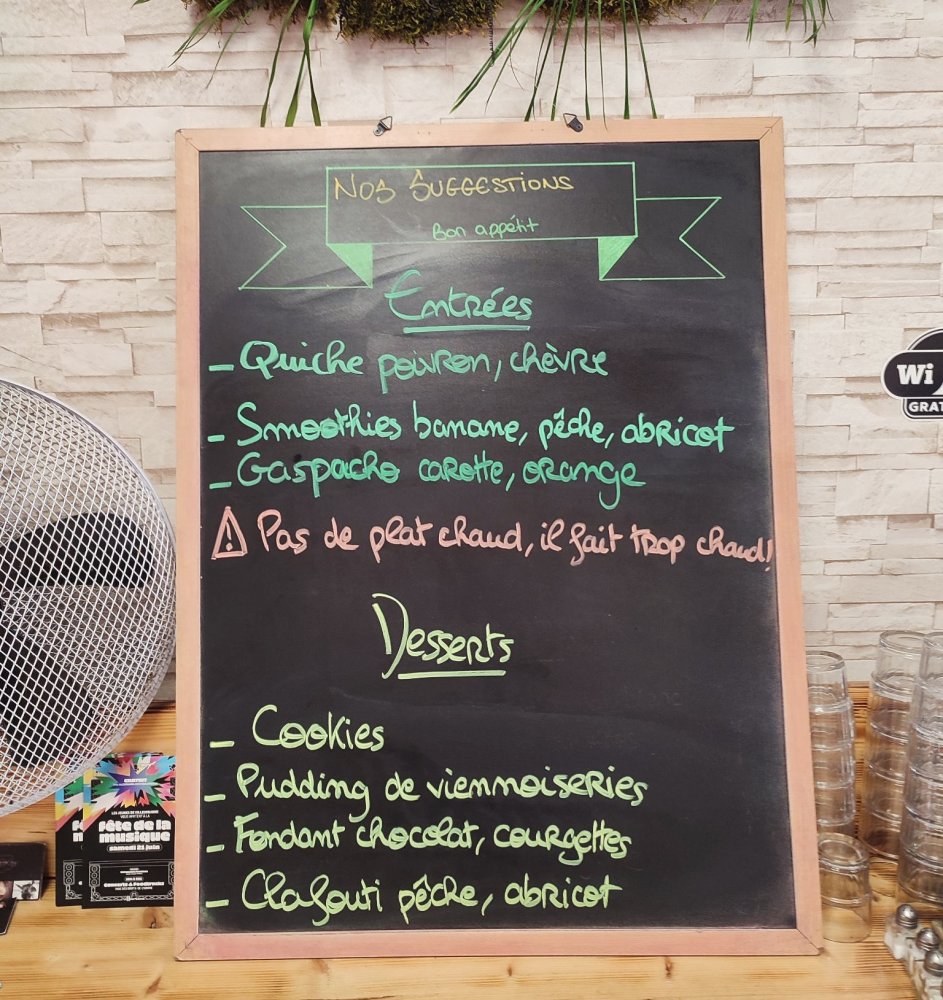 Nos Suggestions
Bon appétit
Entrées
- Quiche poivron, chèvre
- Smoothies banane, pêche, abricot
- Gaspacho carotte, orange
⚠ Pas de plat chaud, il fait trop chaud!
Desserts
- Cookies
- Pudding de viennoiseries
- Fondant chocolat, courgettes
- Clafouti pêche, abricot
Wi
GRAT
fête de la
musique
samedi 21 juin
Concerts & Foodtrucks